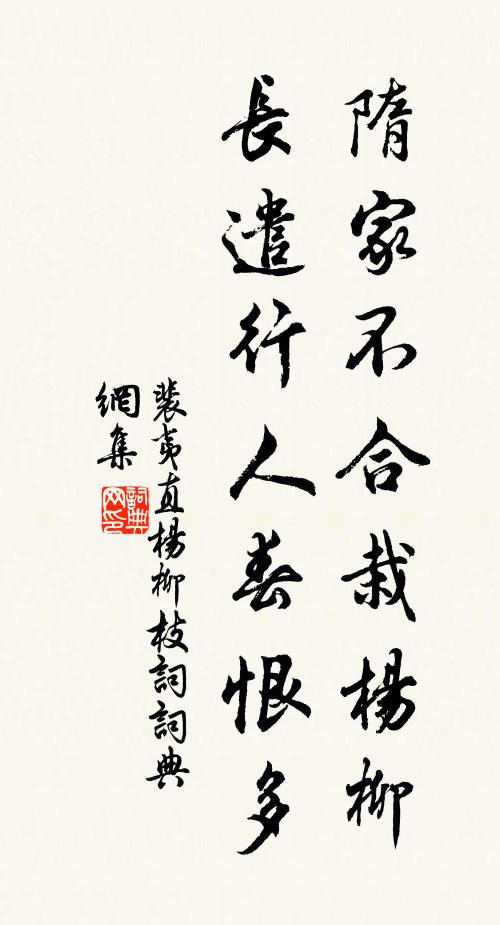 隋家不合栽楊柳
長遣行人春恨多
裴夷直楊柳枝詞詞典
網集
詞典
网印